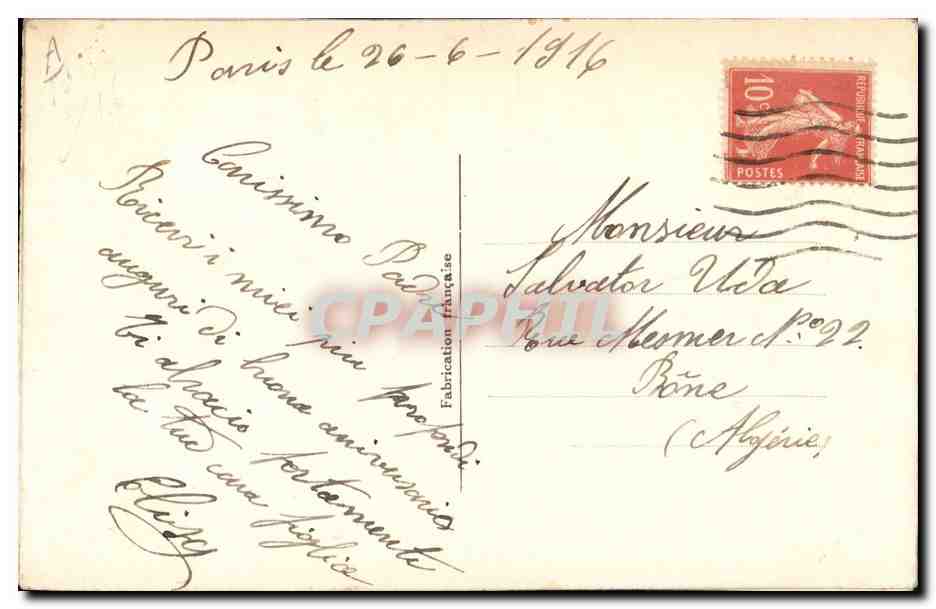 Paris le 26-6-1916
Carissimo Padre
Ricevi i miei piu profondi
auguri di buono aniversario
Ti abracio fortamente
la tua cara figlia
Monsieur
Salvator Uda
Rue Mesmer Nº 22
Bône
(Algérie)
Fabrication française
10c
REPUBLIQUE FRANÇAISE
POSTES
CPAPHIL